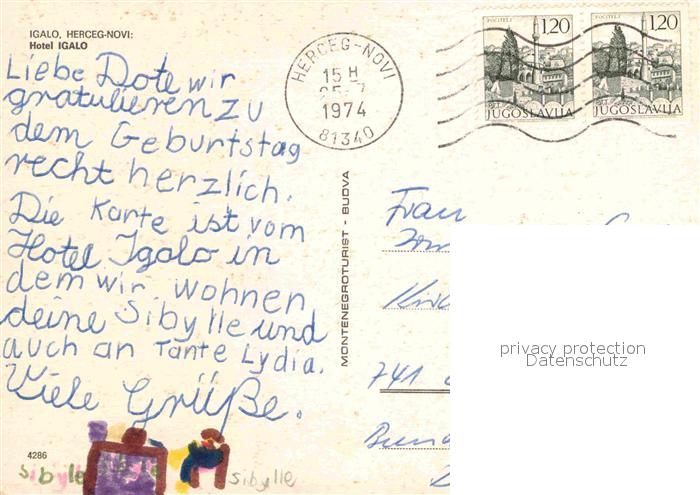 IGALO, HERCEG-NOVI:
Hotel IGALO
Liebe Dote wir
gratulieren zu
dem Geburtstag
recht herzlich.
Die Karte ist vom
Hotel Igalo in
dem wir wohnen
deine Sibylle und
auch an Tante Lydia.
Viele Grüße.
4286
sibylle
sibylle
MONTENEGROTURIST - BUDVA
HERCEG-NOVI
15 H
25-7
1974
81340
POČITELJ
1,20
JUGOSLAVIJA
POČITELJ
1,20
JUGOSLAVIJA
Frau
741
privacy protection
Datenschutz